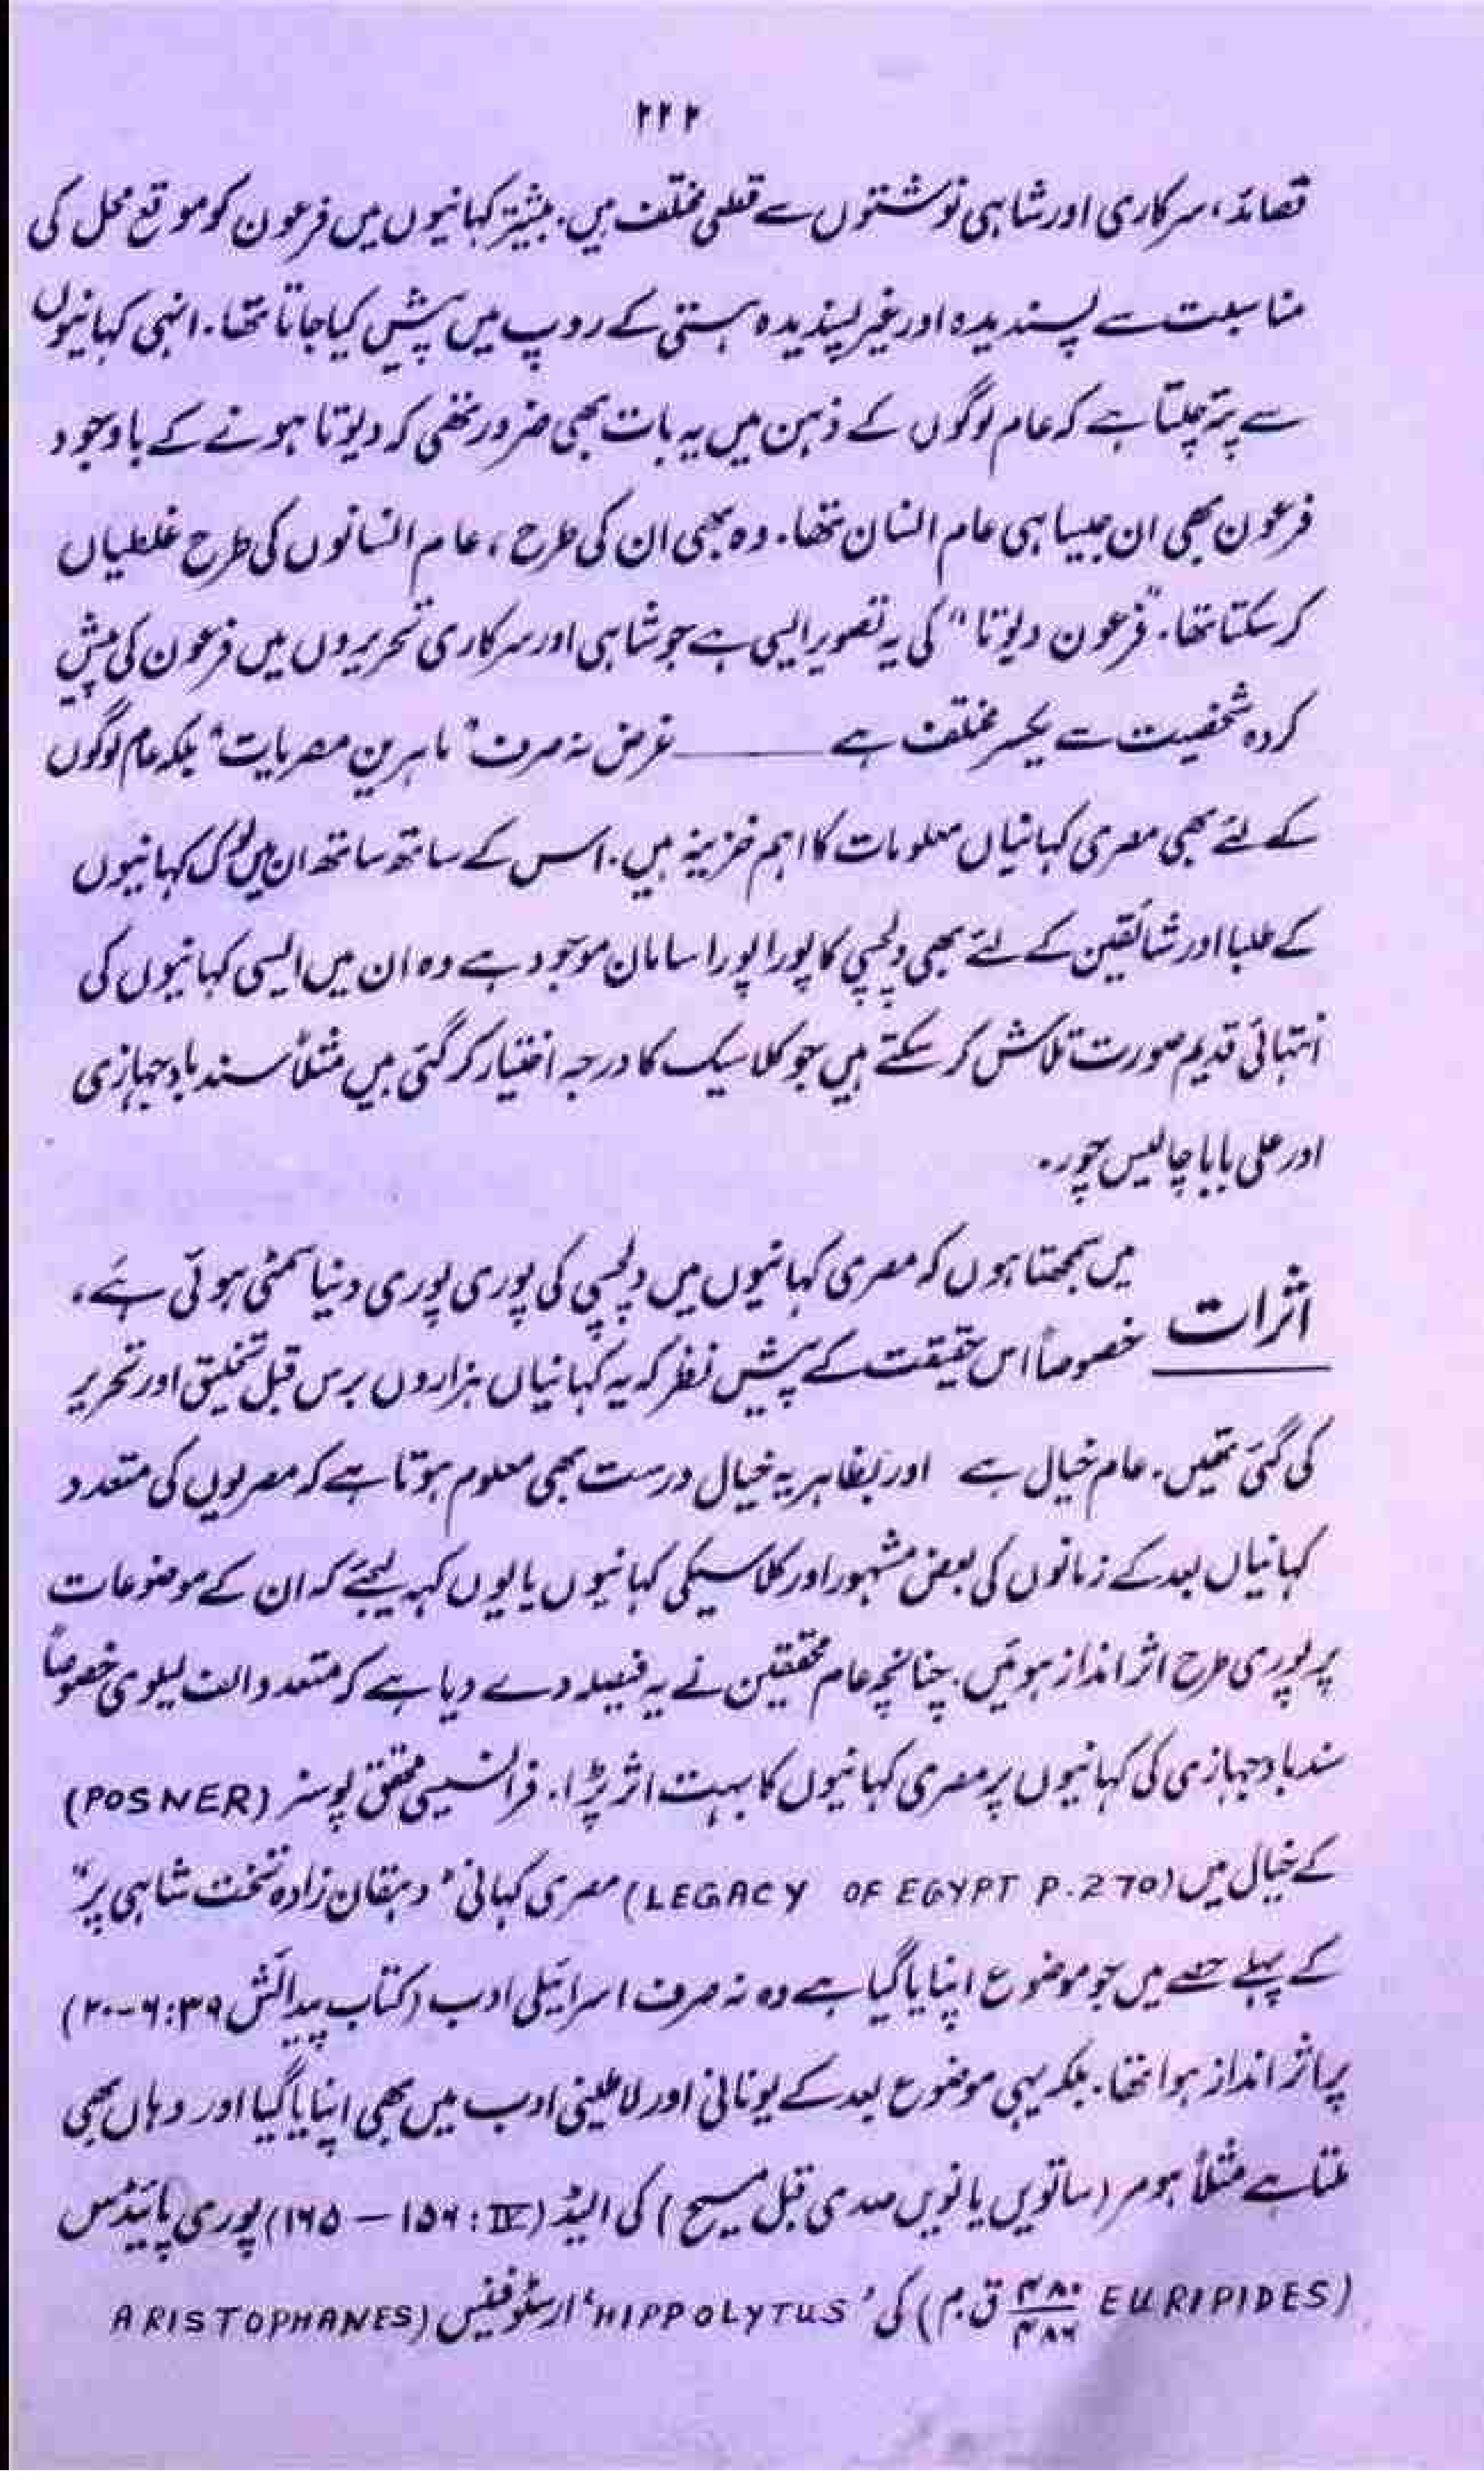 ۲۲۲
قصائد، سرکاری اور شاہی نوشتوں سے قطعی مختلف ہیں. بیشتر کہانیوں میں فرعون کو موقع محل کی
مناسبت سے پسندیدہ اور غیر پسندیدہ ہستی کے روپ میں پیش کیا جاتا تھا. انہی کہانیوں
سے پتہ چلتا ہے کہ عام لوگوں کے ذہن میں یہ بات بھی ضرور تھی کہ دیوتا ہونے کے باوجود
فرعون بھی ان جیسا ہی عام انسان تھا. وہ بھی ان کی طرح، عام انسانوں کی طرح غلطیاں
کر سکتا تھا. "فرعون دیوتا" کی یہ تصویر ایسی ہے جو شاہی اور سرکاری تحریروں میں فرعون کی پیش
کردہ شخصیت سے یکسر مختلف ہے ــــــــ غرض نہ صرف "ماہرین مصریات" بلکہ عام لوگوں
کے لئے بھی مصری کہانیاں معلومات کا اہم خزینہ ہیں. اس کے ساتھ ساتھ ان میں لوک کہانیوں
کے طلبا اور شائقین کے لئے بھی دلچسپی کا پورا پورا سامان موجود ہے وہ ان میں ایسی کہانیوں کی
انتہائی قدیم صورت تلاش کر سکتے ہیں جو کلاسیک کا درجہ اختیار کر گئی ہیں مثلاً سندباد جہازی
اور علی بابا چالیس چور.
اثرات میں سمجھتا ہوں کہ مصری کہانیوں میں دلچسپی کی پوری پوری دنیا سمٹی ہوئی ہے،
خصوصاً اس حقیقت کے پیش نظر کہ یہ کہانیاں ہزاروں برس قبل تخلیق اور تحریر
کی گئی تھیں. عام خیال ہے اور بظاہر یہ خیال درست بھی معلوم ہوتا ہے کہ مصریوں کی متعدد
کہانیاں بعد کے زمانوں کی بعض مشہور اور کلاسیکی کہانیوں یا یوں کہہ لیجئے کہ ان کے موضوعات
پر پوری طرح اثر انداز ہوئیں. چنانچہ عام محققین نے یہ فیصلہ دے دیا ہے کہ متعدد الف لیلوی خصوصاً
سندباد جہازی کی کہانیوں پر مصری کہانیوں کا بہت اثر پڑا. فرانسیسی محقق پوسنر (POSNER)
کے خیال میں (LEGACY OF EGYPT P.270) مصری کہانی "دہقان زادہ تخت شاہی پر"
کے پہلے حصے میں جو موضوع اپنایا گیا ہے وہ نہ صرف اسرائیلی ادب (کتاب پیدائش ۳۹:۶--۲۰)
پر اثر انداز ہوا تھا. بلکہ یہی موضوع بعد کے یونانی اور لاطینی ادب میں بھی اپنایا گیا اور وہاں بھی
ملتا ہے مثلاً ہومر (ساتویں یا نویں صدی قبل مسیح) کی الیڈ (IV: ۱۵۶ – ۱۶۵) یوری پائیڈس
(EURIPIDES ۴۸۰/۴۸۶ ق.م) کی 'HIPPOLYTUS' ارسٹوفینس (ARISTOPHANES